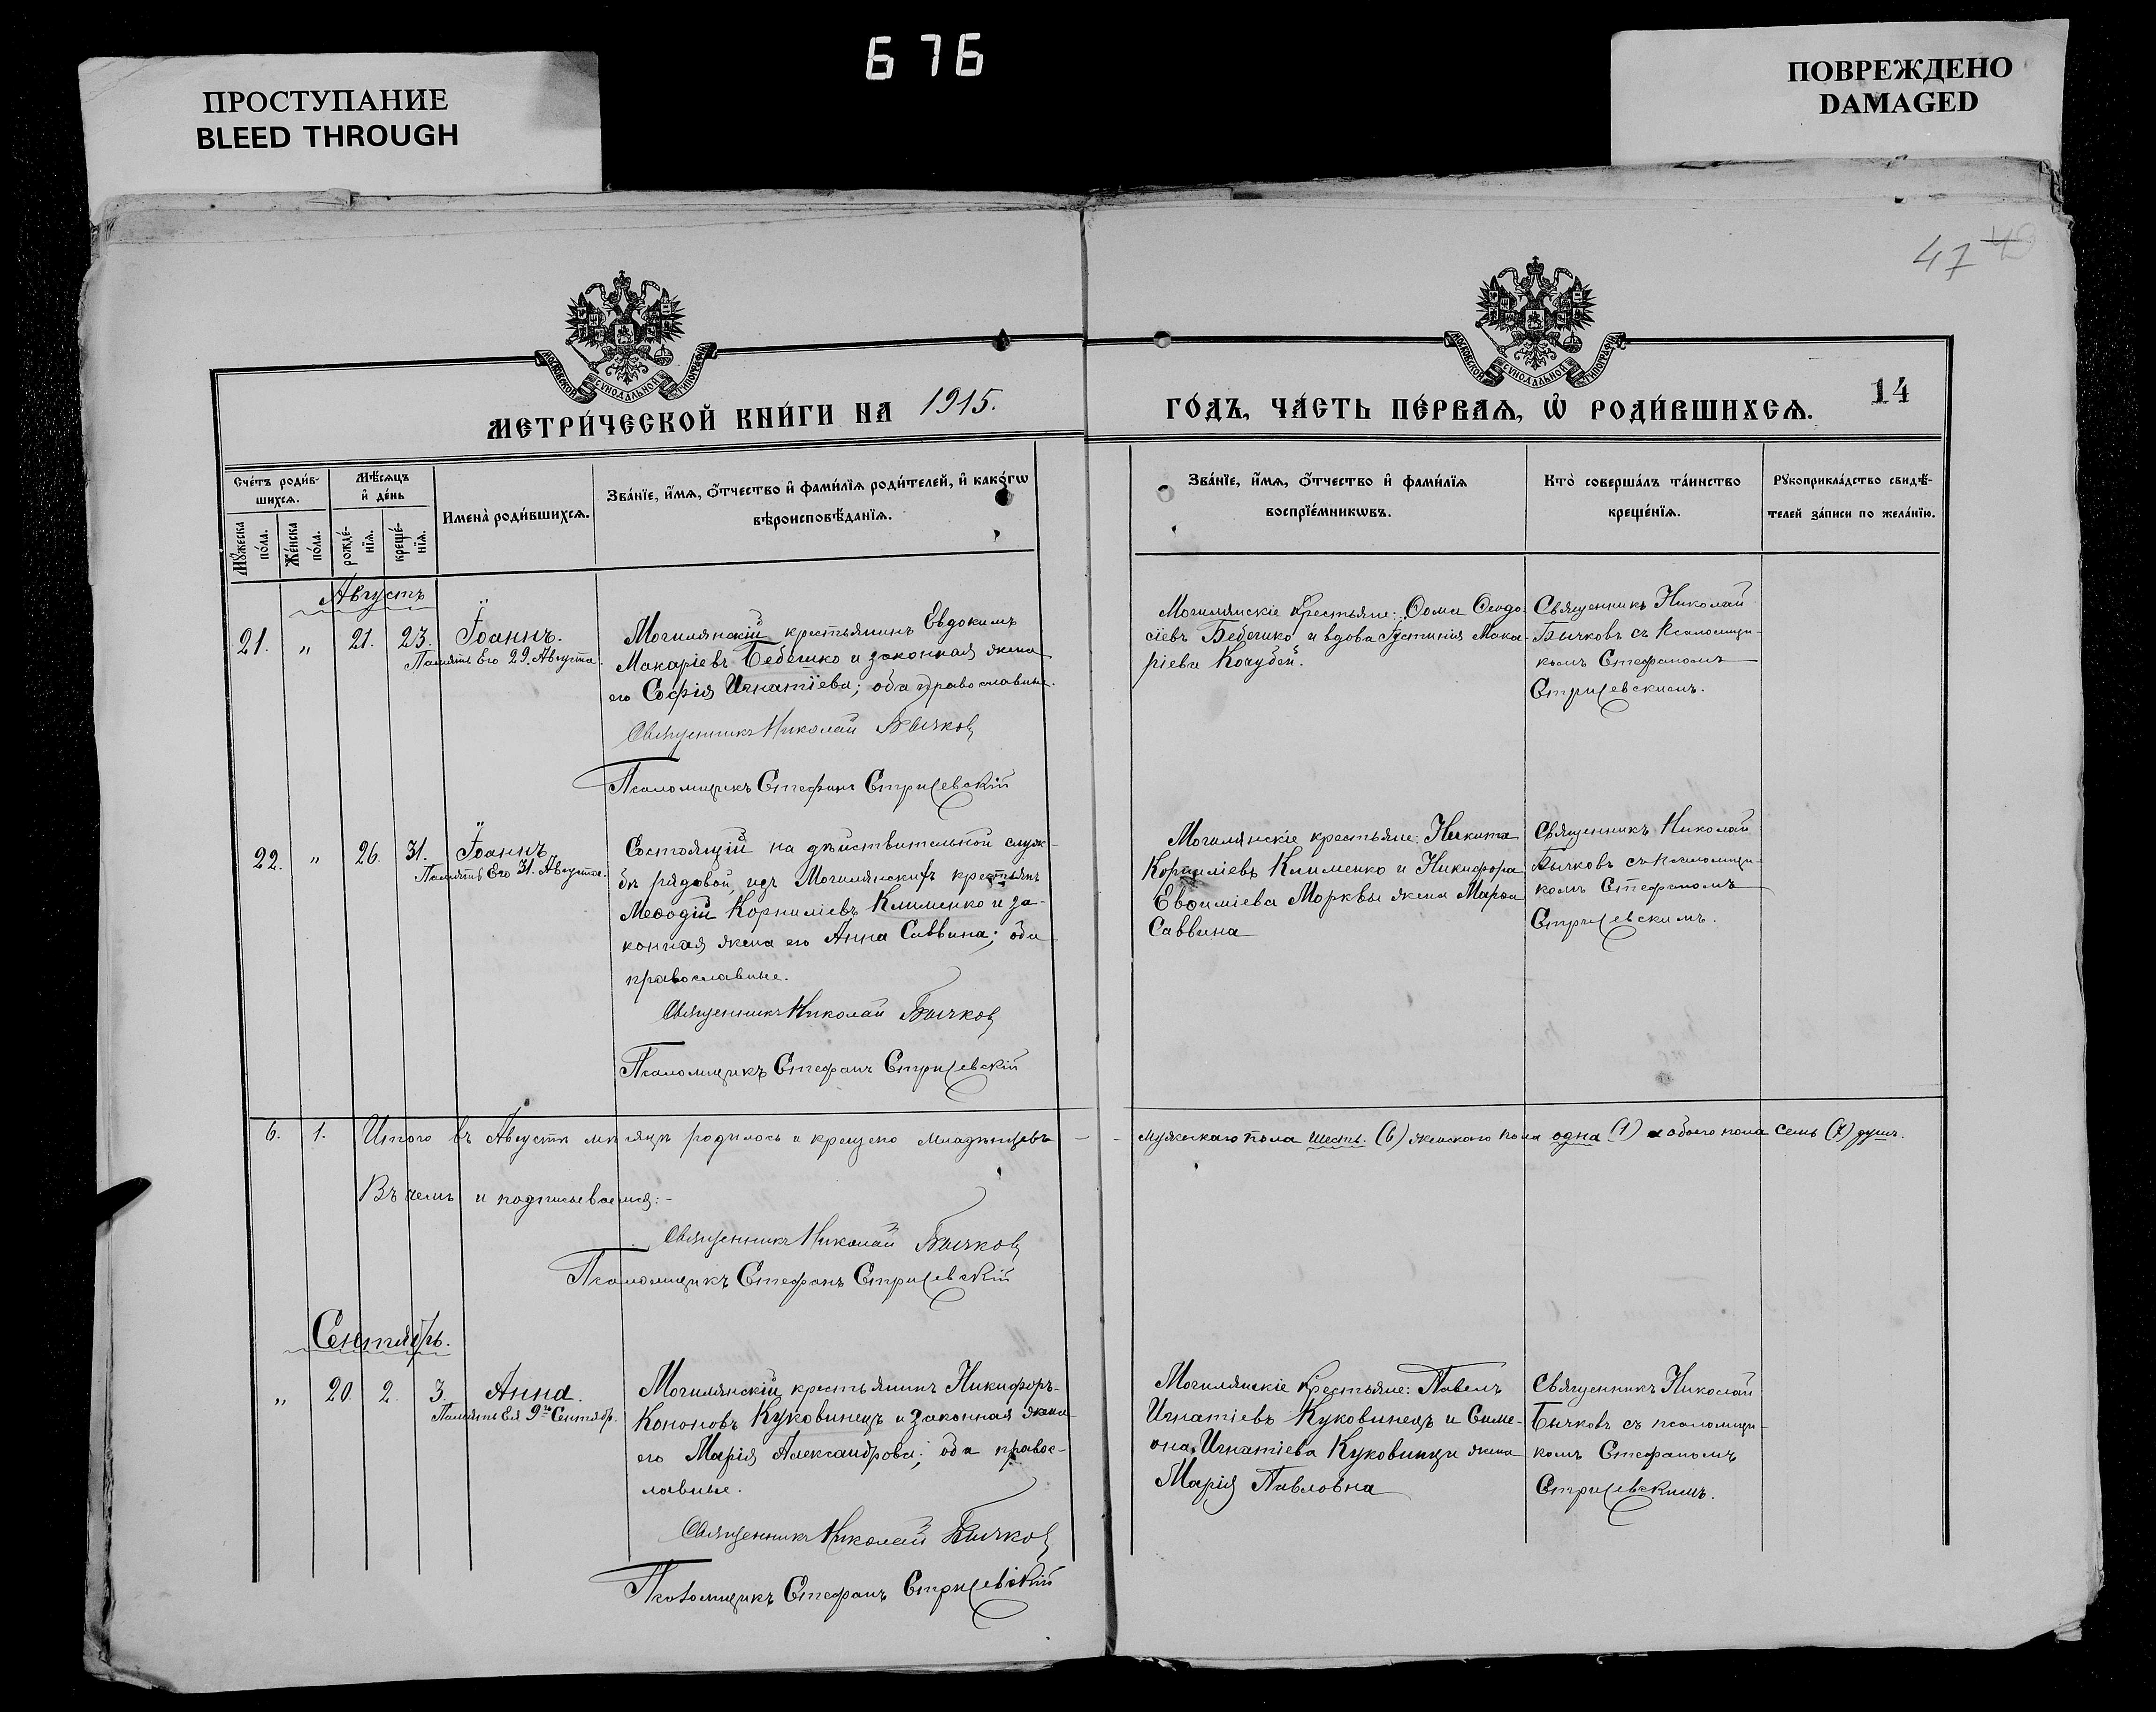 676
ПРОСТУПАНИЕ
BLEED THROUGH
ПОВРЕЖДЕНО
DAMAGED
47
МОСКОВСКОЙ СУНОДАЛЬНОЙ ТИПОГРАФІИ
МОСКОВСКОЙ СУНОДАЛЬНОЙ ТИПОГРАФІИ
МЕТРИ́ЧЕСКОЙ КНИ́ГИ НА 1915.
ГО́ДЪ, ЧА́СТЬ ПЕ́РВАѦ, Ѡ҆ РОДИ́ВШИХСѦ.
14
Сче́тъ роди́в-
шихсѧ.
Мѣ́сѧцъ
и҆ де́нь
Имена̀ роди́вшихсѧ.
Зва́нїе, и҆́мѧ, ѻ҆́тчество и҆ фами́лїѧ роди́телей, и҆ како́гѡ
вѣроисповѣ́данїѧ.
Мꙋ́жеска
по́ла.
Же́нска
по́ла.
рожде́-
нїѧ.
креще́-
нїѧ.
Зва́нїе, и҆́мѧ, ѻ҆́тчество и҆ фами́лїѧ
воспрїе́мникѡвъ.
Кто̀ соверша́лъ та́инство
креще́нїѧ.
Рꙋкоприкла́дство свидѣ́-
телей за́писи по жела́нїю.
Августъ
21. „ 21. 23. Іоаннъ.
Память Его 29. Августа.
Могилянскій крестьянинъ Евдокимъ
Макаріевъ Бебешко и законная жена
его Софія Игнатіева; оба православные.
Священникъ Николай Бычковъ
Псаломщикъ Стефанъ Стришевскій
Могилянскіе крестьяне: Ѳома Ѳеодо-
сіевъ Бебешко и вдова Іустинія Мака-
ріева Кочубей.
Священникъ Николай
Бычковъ съ псаломщи-
комъ Стефаномъ
Стришевскимъ.
22. „ 26. 31. Іоаннъ
Память Его 31. Августа.
Состоящій на дѣйствительной служ-
бѣ рядовой, изъ Могилянскихъ крестьянъ
Меѳодій Корниліевъ Клименко и за-
конная жена его Анна Саввина; оба
православные.
Священникъ Николай Бычковъ
Псаломщикъ Стефанъ Стришевскій
Могилянскіе крестьяне: Никита
Корниліевъ Клименко и Никифора
Евѳиміева Морквы жена Марѳа
Саввина
Священникъ Николай
Бычковъ съ псаломщи-
комъ Стефаномъ
Стришевскимъ.
6. 1. Итого въ Августѣ мѣсяцѣ родилось и крещено младенцевъ — - мужескаго пола шесть (6) женскаго пола одна (1) а обоего пола семь (7) душъ.
Въ чемъ и подписываемся:-
Священникъ Николай Бычковъ
Псаломщикъ Стефанъ Стришевскій
Сентябрь.
„ 20. 2. 3. Анна.
Память Ея 9го Сентябр.
Могилянскій крестьянинъ Никифоръ
Кононовъ Куковинецъ и законная жена
его Марія Александрова; оба правос-
лавные.
Священникъ Николай Бычковъ
Псаломщикъ Стефанъ Стришевскій
Могилянскіе крестьяне: Павелъ
Игнатіевъ Куковинецъ и Симе-
она Игнатіева Куковинци жена
Марія Павловна
Священникъ Николай
Бычковъ съ псаломщи-
комъ Стефаномъ
Стришевскимъ.